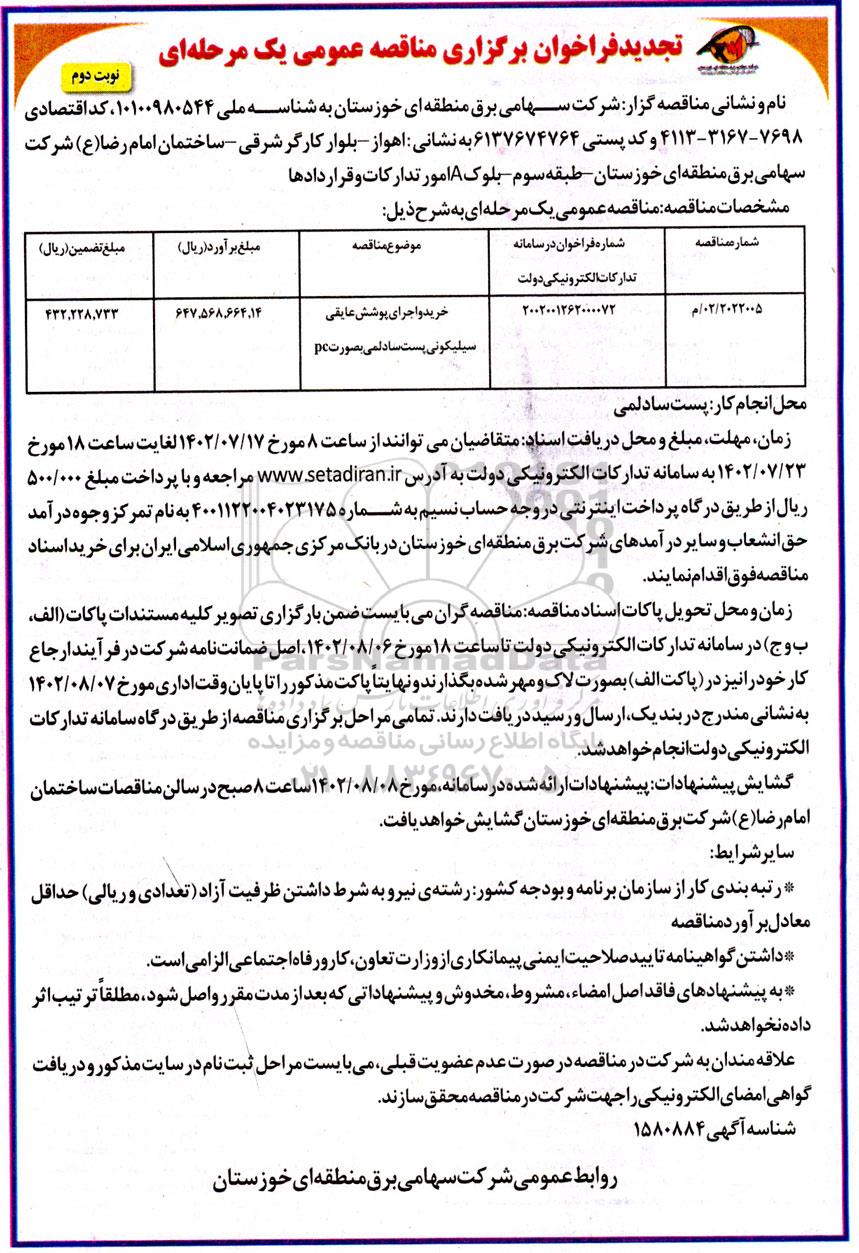 تجدید فراخوان برگزاری مناقصه عمومی یک مرحله‌ای
نوبت دوم
نام و نشانی مناقصه گزار: شرکت سهامی برق منطقه ای خوزستان به شناسه ملی ۱۰۱۰۰۹۸۰۵۴۴، کد اقتصادی
۷۶۹۸-۳۱۶۷-۴۱۱۳ و کد پستی ۶۱۳۷۶۷۴۷۶۴ به نشانی: اهواز – بلوار کارگر شرقی – ساختمان امام رضا(ع) شرکت
سهامی برق منطقه‌ای خوزستان – طبقه سوم – بلوک A امور تدارکات و قراردادها
مشخصات مناقصه: مناقصه عمومی یک مرحله‌ای به شرح ذیل:
شماره مناقصه
شماره فراخوان در سامانه
تدارکات الکترونیکی دولت
موضوع مناقصه
مبلغ برآورد (ریال)
مبلغ تضمین (ریال)
۰۲/۲۰۲۲۰۰۵/م
۲۰۰۲۰۰۱۲۶۲۰۰۰۰۷۲
خرید و اجرای پوشش عایقی
سیلیکونی پست سادلمی بصورت pc
۶۴۷,۵۶۸,۶۶۴,۱۴
۴۳۲,۲۲۸,۷۳۳
محل انجام کار: پست سادلمی
زمان، مهلت، مبلغ و محل دریافت اسناد: متقاضیان می توانند از ساعت ۸ مورخ ۱۴۰۲/۰۷/۱۷ لغایت ساعت ۱۸ مورخ
۱۴۰۲/۰۷/۲۳ به سامانه تدارکات الکترونیکی دولت به آدرس www.setadiran.ir مراجعه و با پرداخت مبلغ ۵۰۰/۰۰۰
ریال از طریق درگاه پرداخت اینترنتی در وجه حساب نسیم به شماره ۴۰۰۱۱۲۲۰۰۴۰۲۳۱۷۵ به نام تمرکز وجوه درآمد
حق انشعاب و سایر درآمدهای شرکت برق منطقه‌ای خوزستان در بانک مرکزی جمهوری اسلامی ایران برای خرید اسناد
مناقصه فوق اقدام نمایند.
زمان و محل تحویل پاکات اسناد مناقصه: مناقصه گران می بایست ضمن بارگزاری تصویر کلیه مستندات پاکات (الف،
ب و ج) در سامانه تدارکات الکترونیکی دولت تا ساعت ۱۸ مورخ ۱۴۰۲/۰۸/۰۶، اصل ضمانت نامه شرکت در فرآیند ارجاع
کار خود را نیز در (پاکت الف) بصورت لاک و مهر شده بگذارند و نهایتاً پاکت مذکور را تا پایان وقت اداری مورخ ۱۴۰۲/۰۸/۰۷
به نشانی مندرج در بند یک، ارسال و رسید دریافت دارند. تمامی مراحل برگزاری مناقصه از طریق درگاه سامانه تدارکات
الکترونیکی دولت انجام خواهد شد.
گشایش پیشنهادات: پیشنهادات ارائه شده در سامانه، مورخ ۱۴۰۲/۰۸/۰۸ ساعت ۸ صبح در سالن مناقصات ساختمان
امام رضا(ع) شرکت برق منطقه‌ای خوزستان گشایش خواهد یافت.
سایر شرایط:
*رتبه بندی کار از سازمان برنامه و بودجه کشور: رشته‌ی نیرو به شرط داشتن ظرفیت آزاد (تعدادی و ریالی) حداقل
معادل برآورد مناقصه
*داشتن گواهینامه تایید صلاحیت ایمنی پیمانکاری از وزارت تعاون، کار و رفاه اجتماعی الزامی است.
*به پیشنهادهای فاقد اصل امضاء، مشروط، مخدوش و پیشنهاداتی که بعد از مدت مقرر واصل شود، مطلقاً ترتیب اثر
داده نخواهد شد.
علاقه مندان به شرکت در مناقصه در صورت عدم عضویت قبلی، می بایست مراحل ثبت نام در سایت مذکور و دریافت
گواهی امضای الکترونیکی را جهت شرکت در مناقصه محقق سازند.
شناسه آگهی ۱۵۸۰۸۸۴
روابط عمومی شرکت سهامی برق منطقه‌ای خوزستان
ParsNamadData
پایگاه اطلاع رسانی مناقصه و مزایده